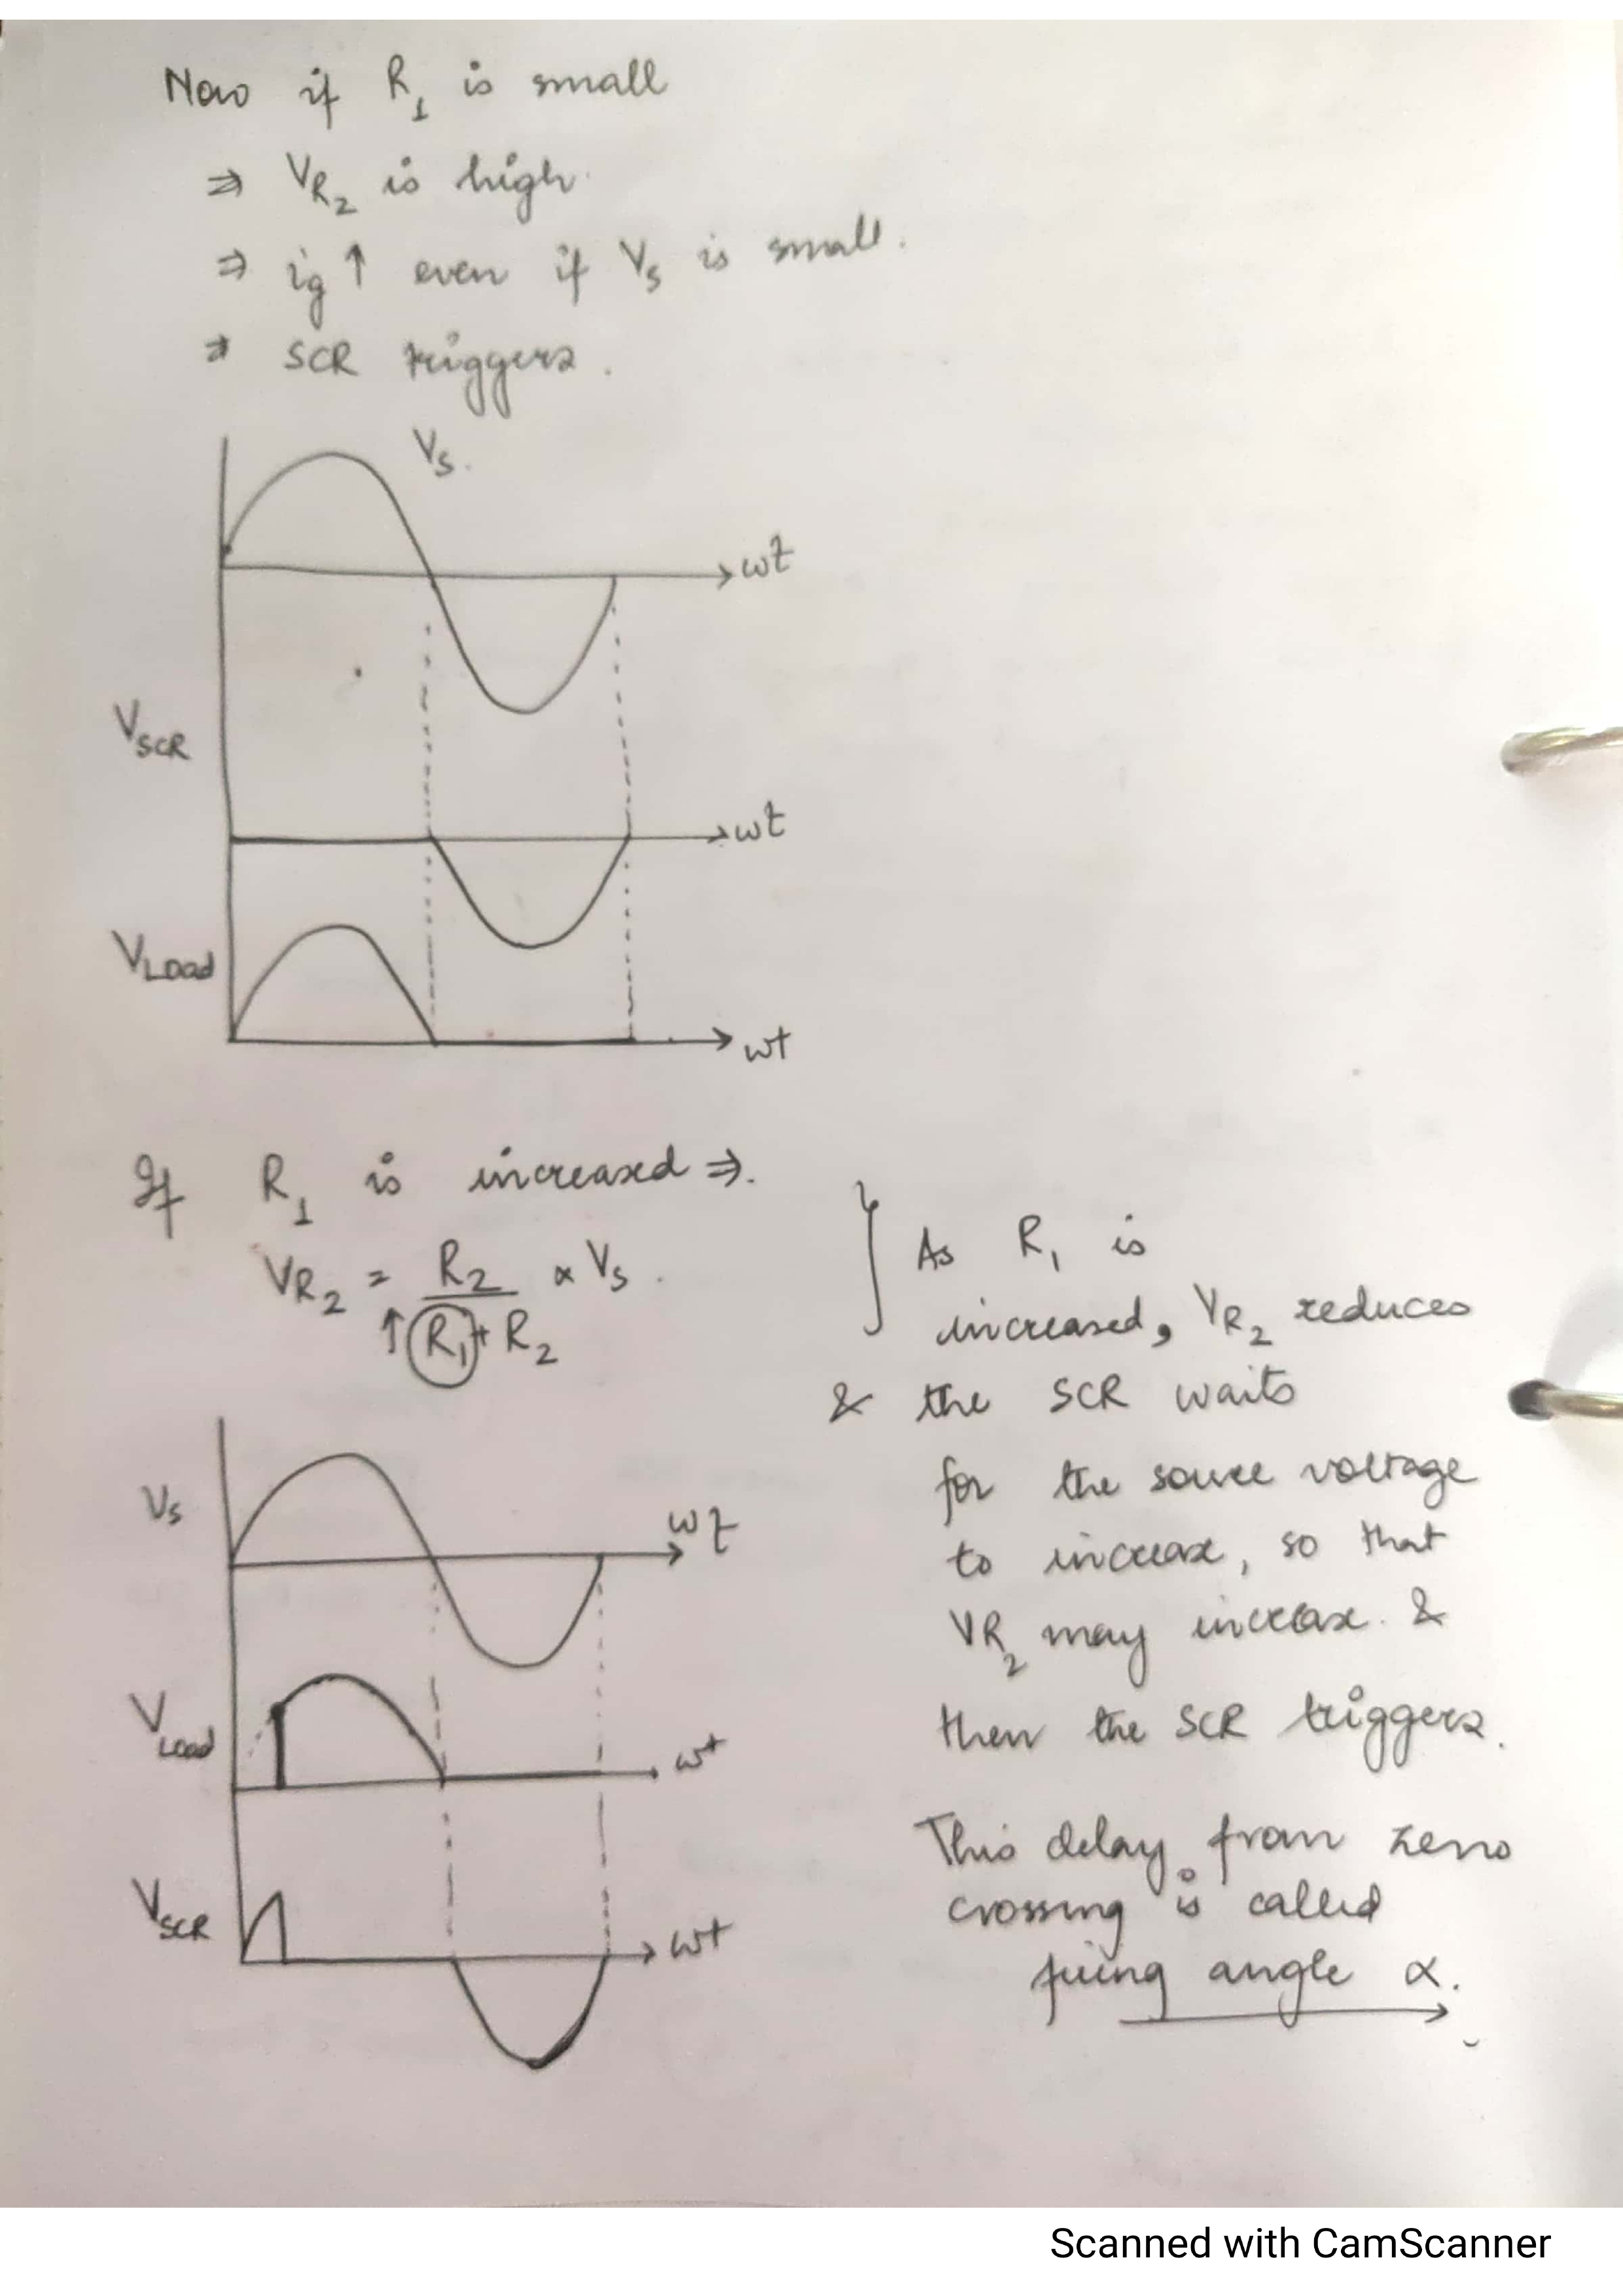 Now if R₁ is small
⇒ VR₂ is high.
⇒ ig ↑ even if Vs is small.
⇒ SCR triggers.
Vs.
ωt
VSCR
ωt
VLoad
ωt
If R₁ is increased ⇒.
VR₂ = R₂ / ↑(R₁) + R₂ × Vs.
} As R₁ is
increased, VR₂ reduces
& the SCR waits
for the source voltage
to increase, so that
VR₂ may increase. &
then the SCR triggers.
This delay from zero
crossing is called
firing angle α.
Vs
ωt
VLoad
ωt
VSCR
ωt
Scanned with CamScanner